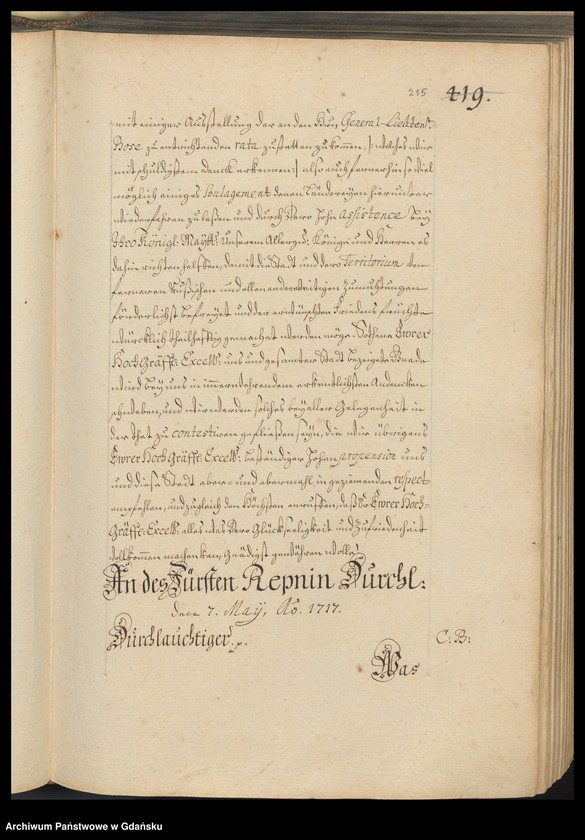 215 419.
mit einiger Ausstellung der an den Hrn. General-Lieuten:
Bose zu entrichtenden rata zustatten zu kommen, |: welches wir
mit schuldigstem danck erkennen :| also auch fernerhin so viel
möglich einiges Soulagement denen Ländereyen hierunter
wiederfahren zu laßen und durch Dero hohe Assistence bey
Ihro Königl: Maytt: Unserem Allergn: Könige und Herren es
dahin richten helffen, damit die Stadt und dero Territorium von
ferneren Rußischen und allen anderweitigen Zumuthungen
förderlichst befreyet und der erwünschten Friedens früchte
würcklich theilhafftig gemachet werden möge. Sothane Ewrer
HochGräffl: Excell: uns und gesamter Stadt bezeigte Gnade
wird bey uns in immerwehrendem erkentlichsten Andencken
schweben, und wir werden solches bey aller Gelegenheit in
der that zu contestiren gefließen seyn, die wir übrigens
Ewrer HochGräffl: Excell: beständiger hohen propension uns
und diese Stadt aber- und abermahl in geziemenden respect
empfehlen, und zugleich den Höchsten anruffen, daß Er Ewrer Hoch-
Gräffl: Excell: alles was Dero Glückseeligkeit und Zufriedenheit
vollkommen machen kan, gnädigst gewähren wolle.
An des Fürsten Repnin Durchl:
den 7. Maÿ, Ao. 1717.
Durchlauchtiger p.
C: B:
Was
Archiwum Państwowe w Gdańsku